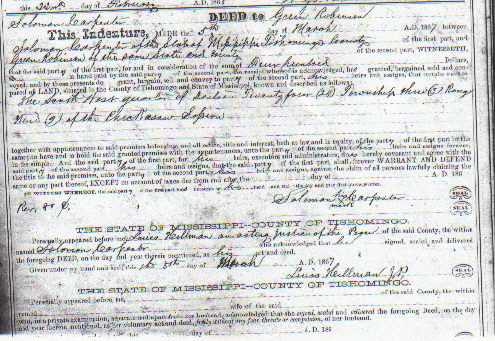 this 22nd day of February A.D. 186
Solomon Carpenter DEED to Green Robinson
This Indenture, MADE the 5th day of March A.D. 1867, between
Solomon Carpenter of the State of Mississippi Tishomingo County of the first part, and
Green Robinson of the same State and County of the second part, WITNESSETH,
that the said party of the first part, for and in consideration of the sum of hundred Dollars,
in hand paid by the said party of the second part, the receipt whereof is acknowledged, has granted, bargained, sold and con-
veyed, and by these presents do grant, bargain, sell and convey to the said party of the second part, his heirs and assigns, that certain
of LAND, situated in the County of Tishomingo and State of Mississippi, known and described as follows:
The South West quarter of Section Twenty four (24) Township three (3) Range
(9) of the Chickasaw
together with appurtenances to said premises belonging, and all estate, title and interest, both at law and in equity, of the party of the first part in the
same, to have and to hold the said granted premises with the appurtenances, unto the party of the second part his heirs and assigns forever,
in fee simple. And the said party of the first part, for his heirs, executors and administrators, does hereby covenant and agree with the
said party of the second part, heirs and assigns, that the said party of the first part, shall, forever WARRANT AND DEFEND
the title to the said premises, unto the party of the second part, his heirs and assigns, against the claim of all persons lawfully claiming the
same or any part thereof, EXCEPT on account of taxes due from and after the day of A.D. 186
IN WITNESS WHEREOF, the part of the first part
Solomon Carpenter SEAL
mark
Rev. SEAL
THE STATE OF MISSISSIPPI--COUNTY OF TISHOMINGO.
Personally appeared before me, Louis Hellman an acting Justice of the Peace of said County, the within
named Solomon Carpenter who acknowledged that he signed, sealed and delivered
the foregoing DEED, on the day and year therein mentioned, as his act and deed.
Given under my hand and seal this 5th day of March A.D. 1867
Louis Hellman J.P. SEAL
THE STATE OF MISSISSIPPI--COUNTY OF TISHOMINGO.
Personally appeared before me, of the said County, the within
named wife of the said
who, in a private examination, separate and apart from her husband, acknowledged that she signed, sealed and delivered the foregoing Deed, on the day
and year therein mentioned, as her voluntary act and deed, freely, without any fear, threats or compulsion, of her husand.
day of A.D. 186